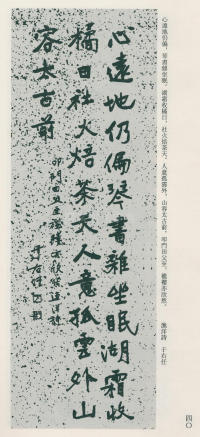 心遠地仍偏，琴書雜坐眠，湖霜收橘日，社火焙茶天，人意孤雲外，山容太古前，叩門田父至，襁褓亦欣然。 漁洋詩 于右任
心遠地仍偏琴書雜坐眠湖霜收
橘日社火焙茶天人意孤雲外山
容太古前
叩門田父至襁褓亦欣然漁洋詩
于右任
四〇